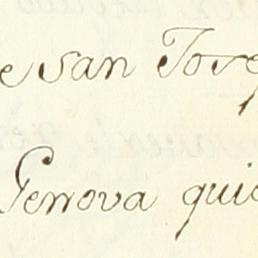 e san Jose
Genova qui